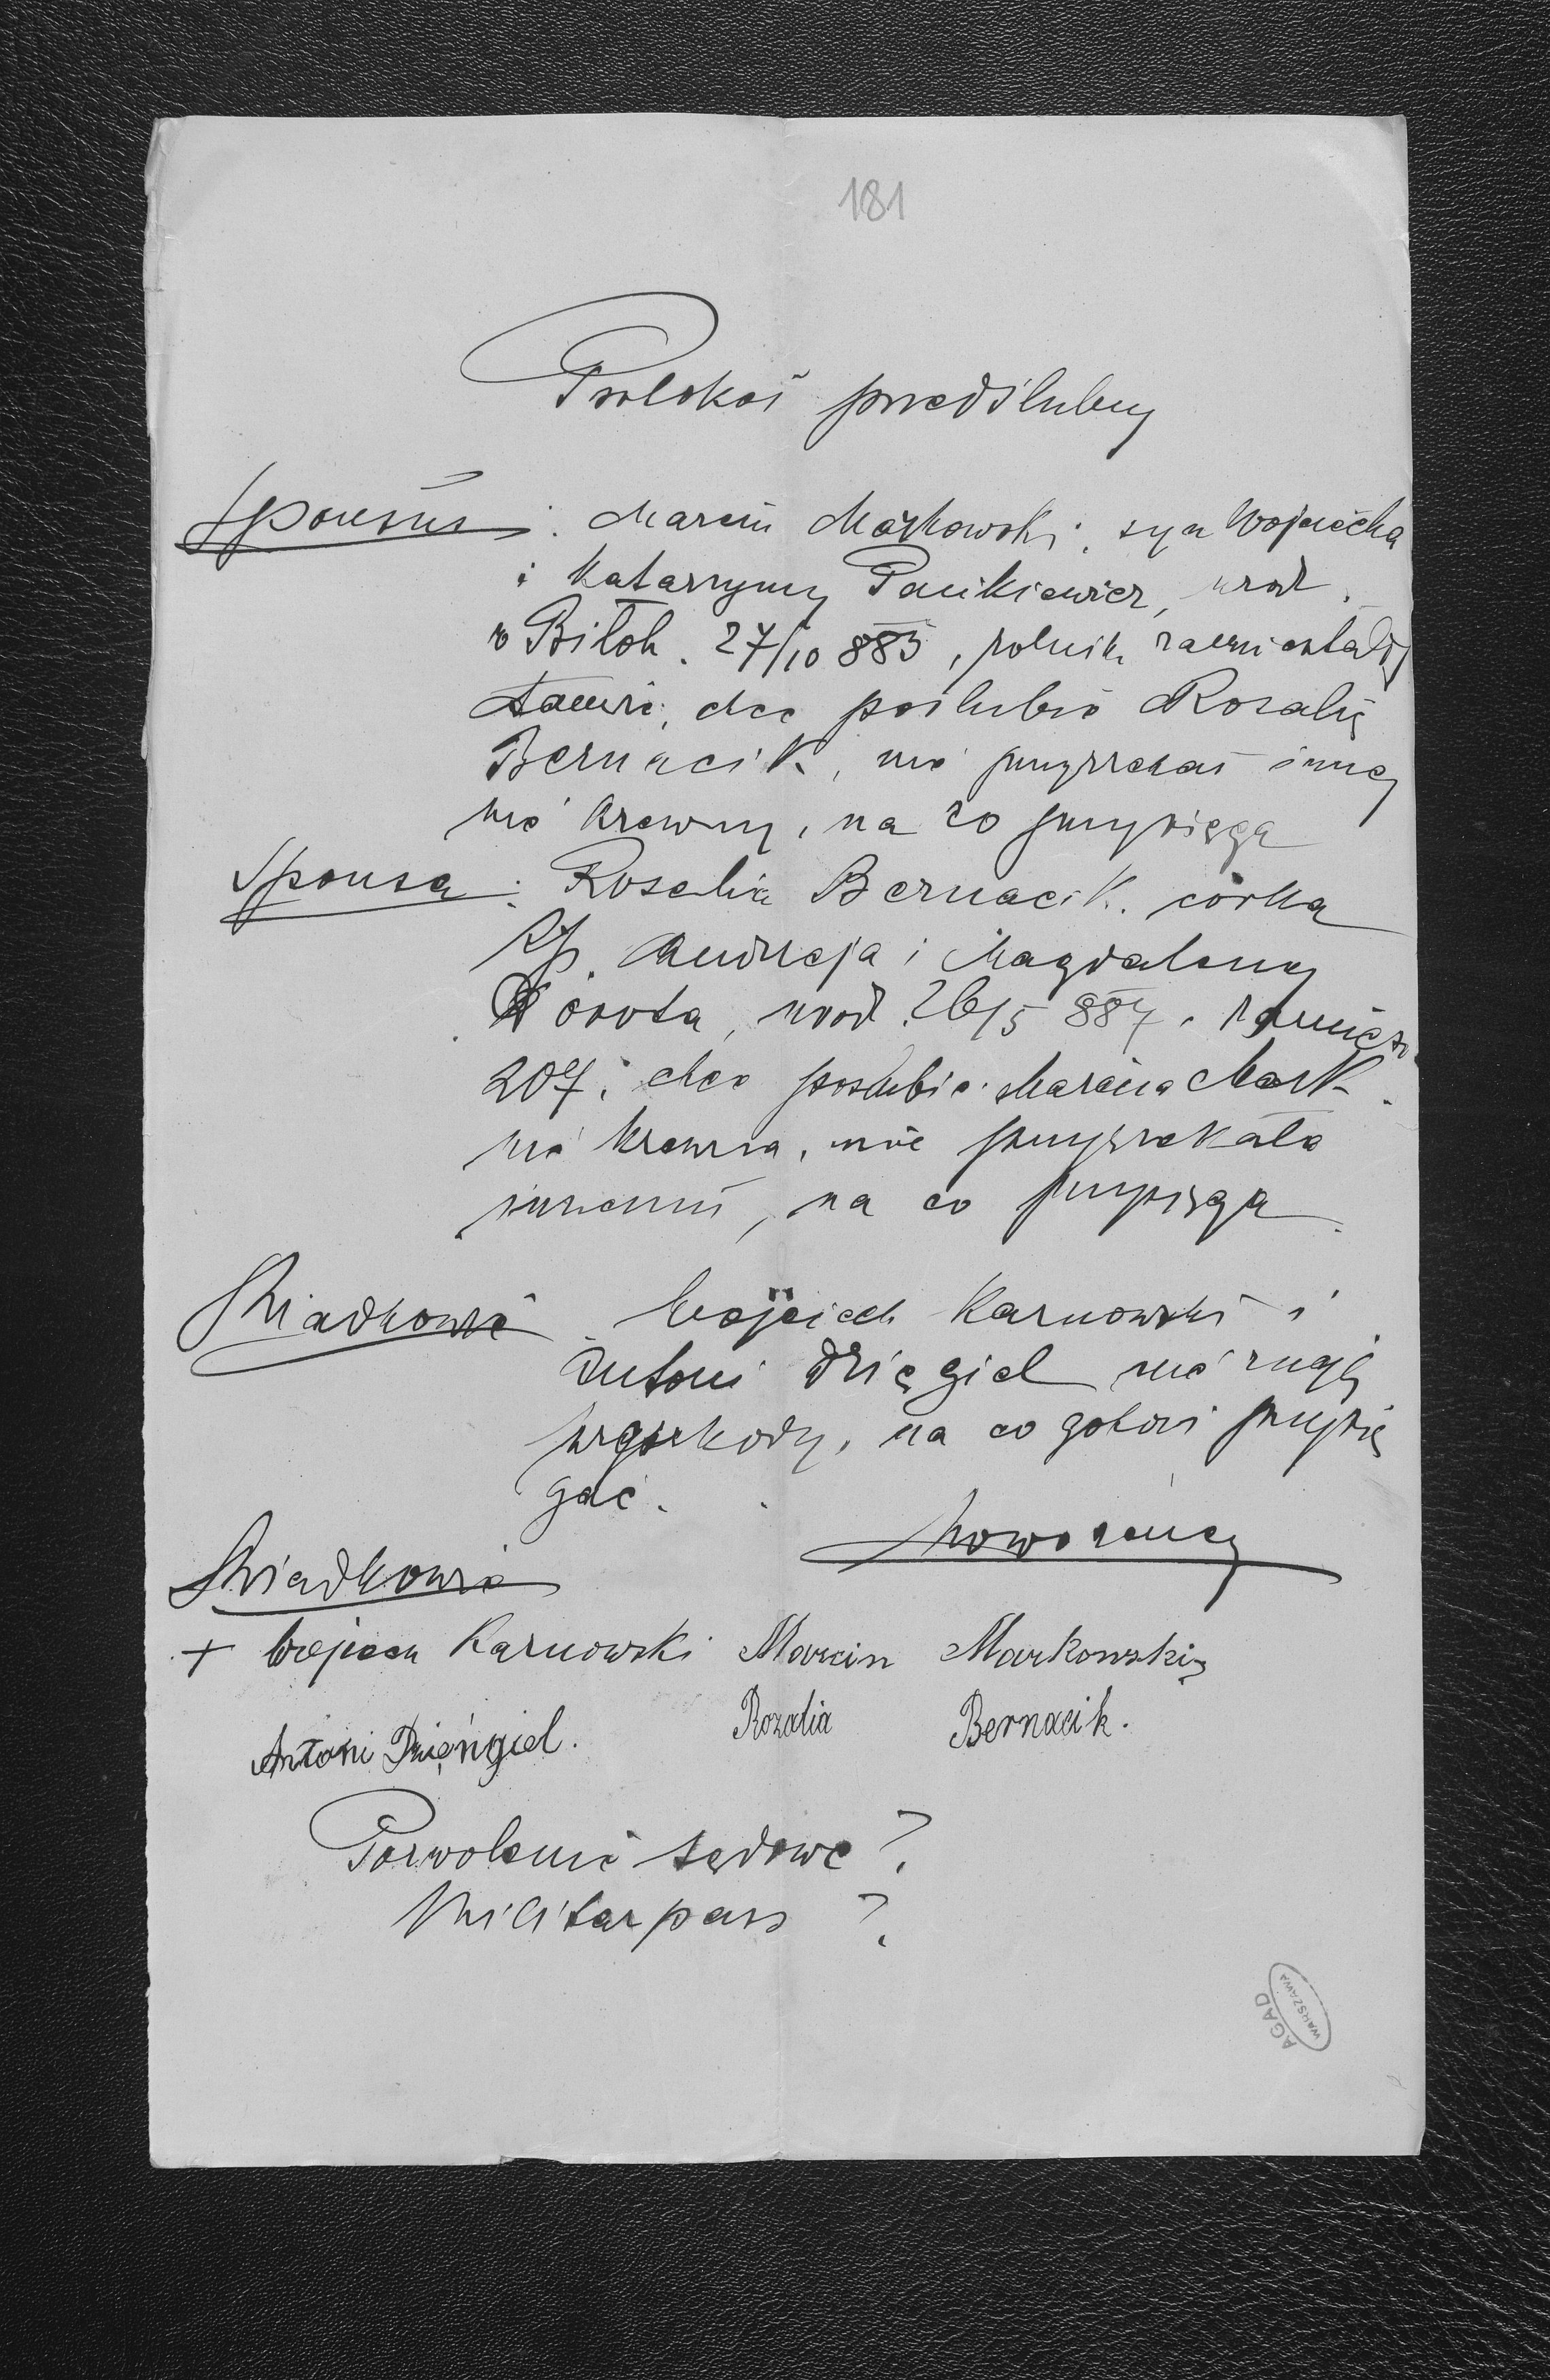 181
Protokół przedślubny
Sponsus: Marcin Markowski, syn Wojciecha
i Katarzyny Pankiewicz, urodz.
w Biłoh. 27/10 885, rolnik zamieszkały
tamże, chce poślubić Rozalię
Bernacik, nie przyrzekał innej
nie krewny, na co przysięga
Sponsa: Rozalia Bernacik, córka
Andrzeja i Magdaleny
urod. 26/5 887,
207, chce poślubić Marcina Mark.
nie krewna, nie przyrzekała
innemu, na co przysięga.
Świadkowie Wojciech Karnowski i
Antoni Dzięgiel nie znają
przeszkody, na co gotowi przysię
gać.
Nowożeńcy
Świadkowie
+ Wojciech Karnowski Marcin Markowski
Antoni Dzięngiel. Rozalia Bernacik.
Pozwolenie sądowe?
Militarpass?
AGAD
WARSZAWA